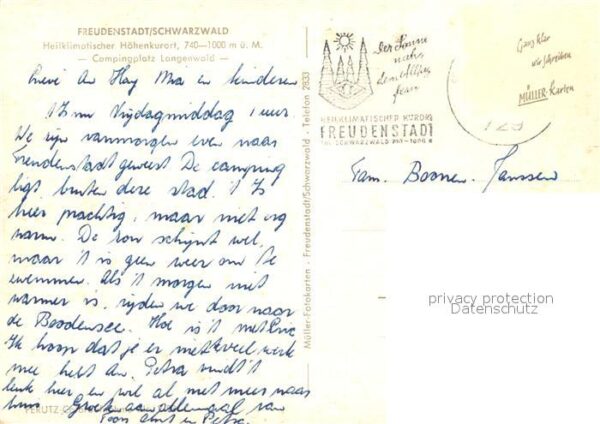 FREUDENSTADT/SCHWARZWALD
Heilklimatischer Höhenkurort, 740—1000 m ü. M.
— Campingplatz Langenwald —
Lieve An Hay Mia en kinderen
't Is nu Vrijdagmiddag 1 uur.
We zijn vanmorgen even naar
Freudenstadt geweest De camping
ligt buiten deze stad. 't Is
hier prachtig, maar niet erg
warm. De zon schijnt wel,
maar 't is geen weer om te
zwemmen. Als 't morgen niet
warmer is, rijden we door naar
de Boodensee. Hoe is 't met
Ik hoop dat je er niet veel werk
mee hebt An. Petra vindt 't
leuk hier en wil al niet meer naar
huis Groeten aan allemaal van
Toos en Petra
PERUTZ
Müller-Fotokarten · Freudenstadt/Schwarzwald · Telefon 2833
Der Sonne
nahe
dem Alltag
fern
HEILKLIMATISCHER KURORT
FREUDENSTADT
IM SCHWARZWALD 740-1000 m
Ganz klar
wir schreiben
MÜLLER-Karten
Fam. Boonen-Janssen
privacy protection
Datenschutz